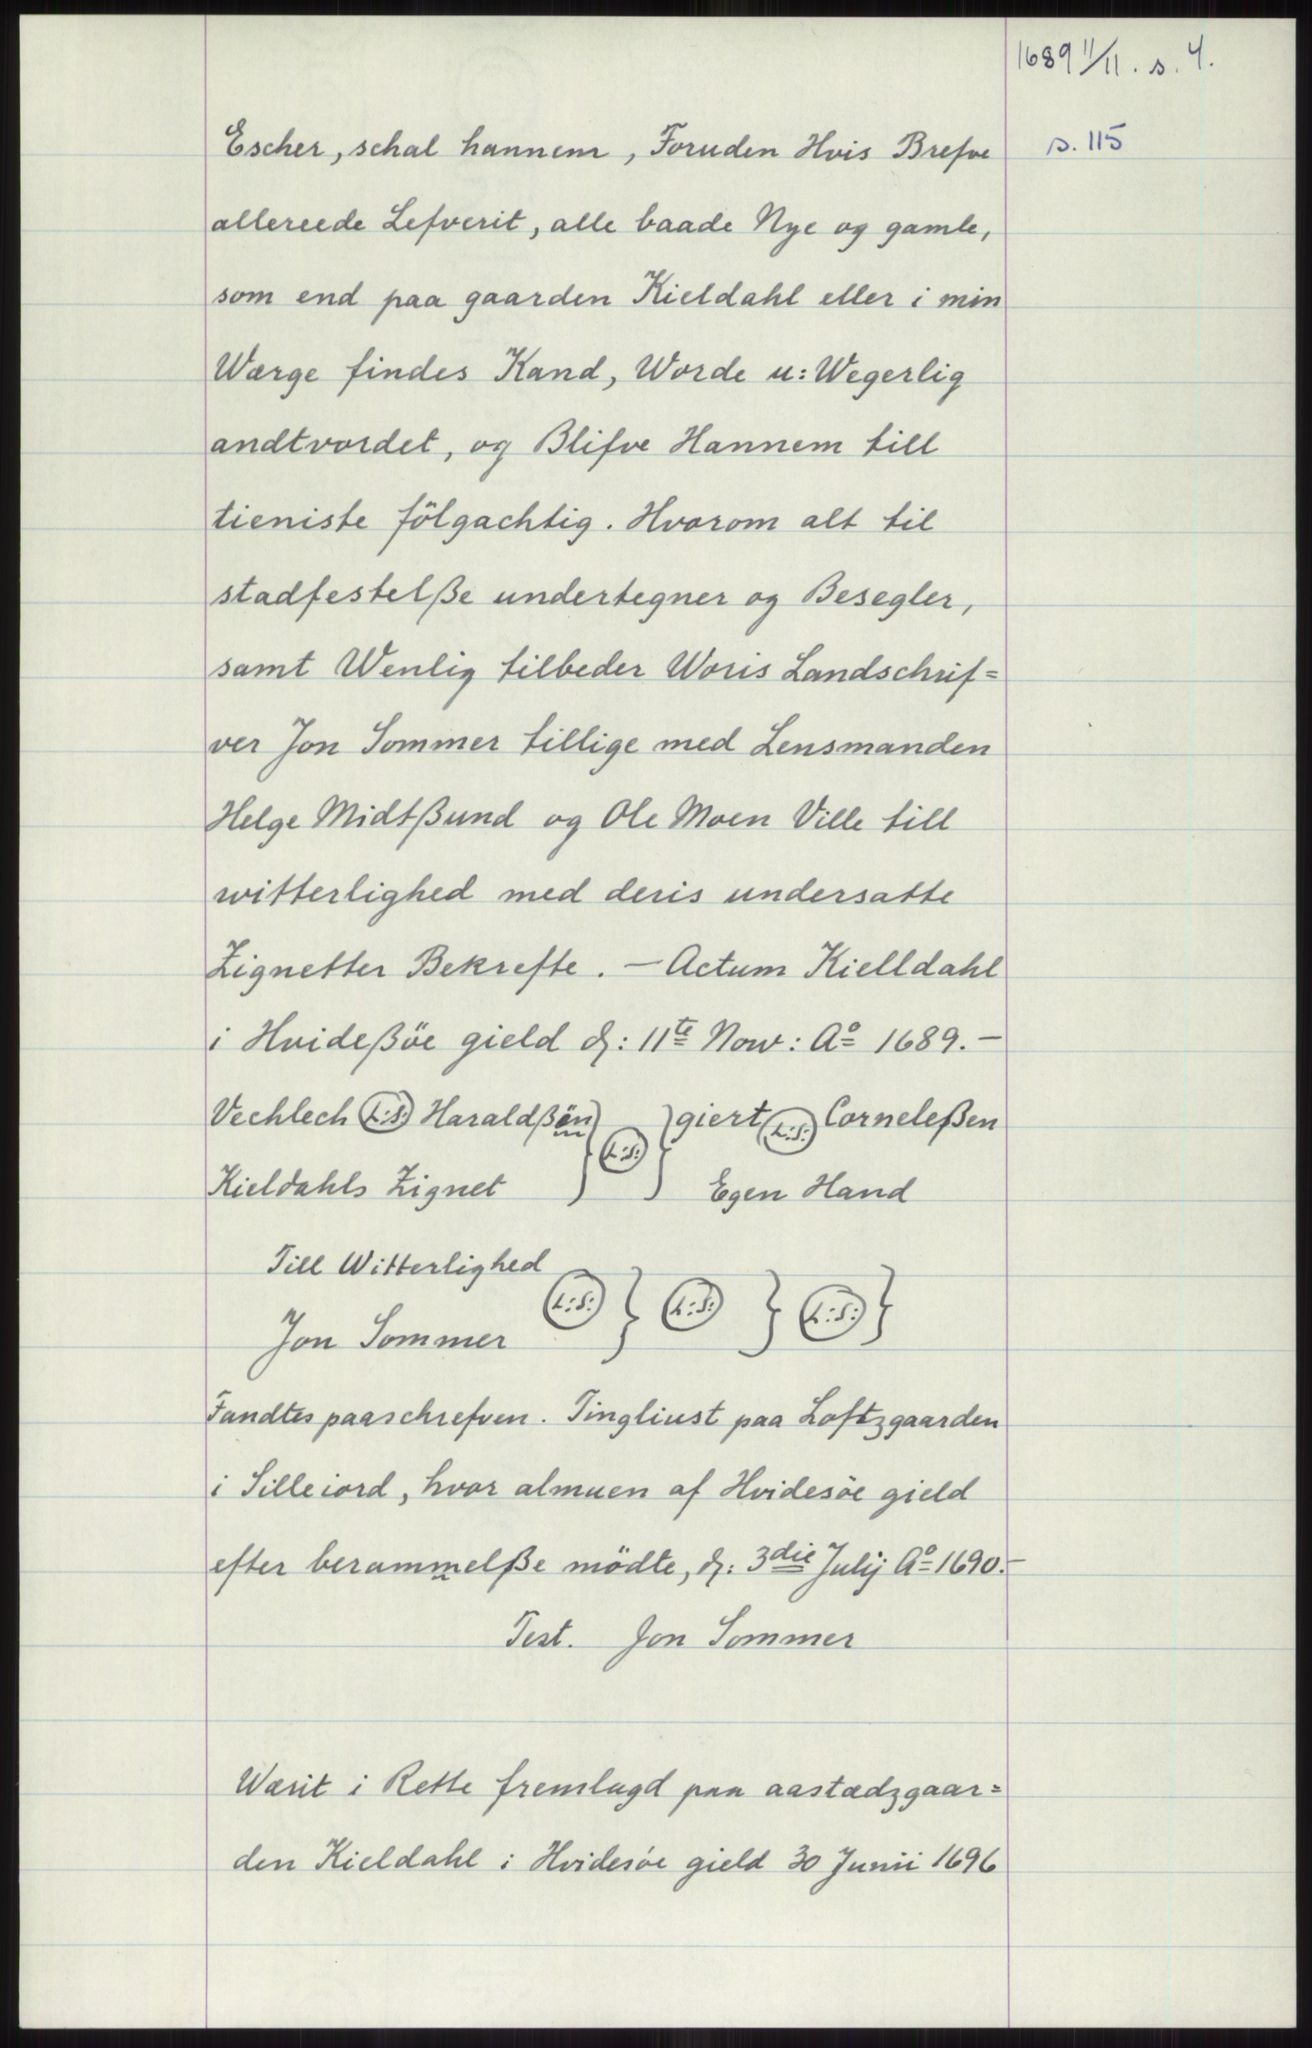 1689 11/11. s. 4.
s. 115
Escher, schal hannem, Foruden Hvis Brefve
allereede Lefverit, alle baade Nye og gamle,
som end paa gaarden Kieldahl eller i min
Wærge findes Kand, Worde u: Wegerlig
andtvordet, og Blifve Hannem till
tieniste fölgachtig. Hvorom alt til
stadfestelße undertegner og Besegler,
samt Wenlig tilbeder Woris Landschrif=
ver Jon Sommer tillige med Lensmanden
Helge Midtßund og Ole Moen Ville till
witterlighed med deris undersatte
Zignetter Bekrefte. — Actum Kielldahl
i Hvideßöe gield d: 11te Now: Ao 1689. —
Vechlech (L:S:) Haraldßön } (L:S:) } giert (L:S:) Corneleßen
Kieldahls Zignet Egen Hand
Till Witterlighed
Jon Sommer (L:S:) } (L:S:) } (L:S:) }
Fandtes paaschrefven. Tingliust paa Loftzgaarden
i Silleiord, hvor almuen af Hvidesöe gield
efter berammelße mödte, d: 3die Julij Ao 1690. —
Test. Jon Sommer
Wærit i Rette fremlagd paa aastædzgaar=
den Kieldahl i Hvidesöe gield 30 Junii 1696